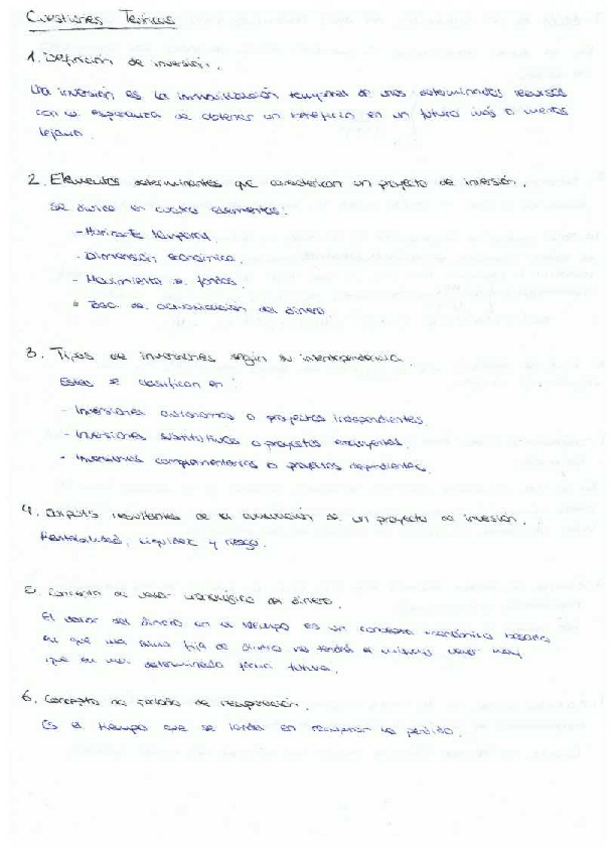 Cuestiones Teóricas
1. Definición de inversión.
Una inversión es la inmovilización temporal de unos determinados recursos
con la esperanza de obtener un beneficio en un futuro más o menos
lejano.
2. Elementos determinantes que caracterizan un proyecto de inversión.
Se divide en cuatro elementos:
- Horizonte temporal.
- Dimensión económica.
- Movimiento de fondos.
- Tasa de actualización del dinero.
3. Tipos de inversiones según su interdependencia
Estas se clasifican en:
- Inversiones autónomas o proyectos independientes.
- Inversiones sustitutivas o proyectos excluyentes.
- Inversiones complementarias o proyectos dependientes.
4. Outputs resultantes de la evaluación de un proyecto de inversión.
Rentabilidad, liquidez y riesgo.
5. Concepto de valor cronológico del dinero.
El valor del dinero en el tiempo es un concepto económico basado
en que una suma fija de dinero no tendrá el mismo valor hoy
que en una determinada fecha futura.
6. Concepto de período de recuperación.
Es el tiempo que se tarda en recuperar lo perdido.